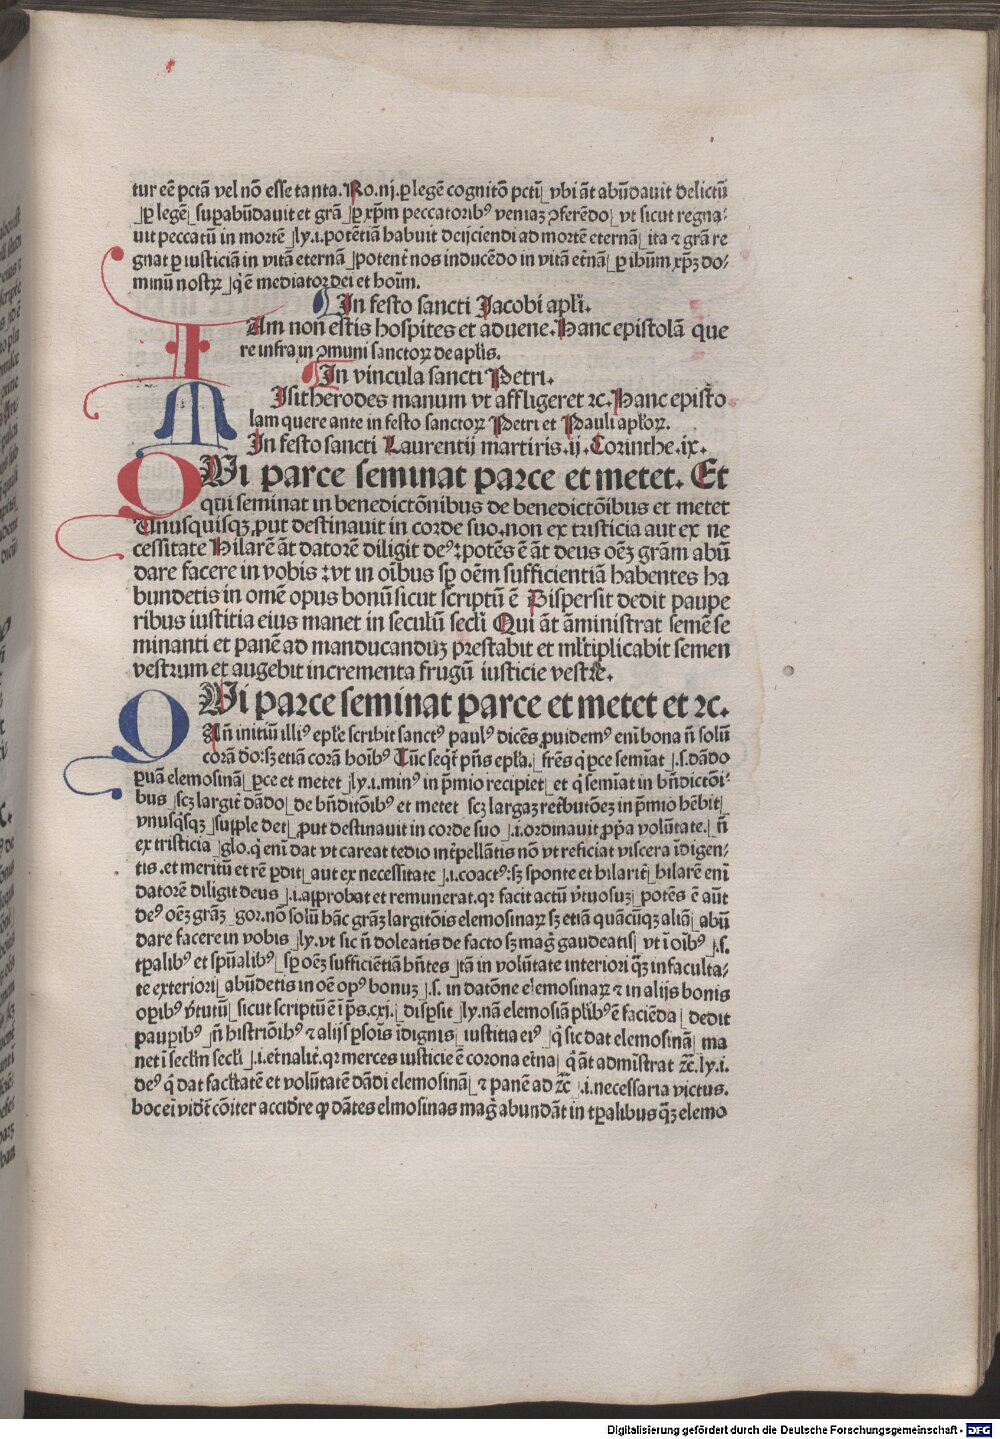 tur eē pctā vel nō esse tanta. Ro.nj. ꝑ legē cognitō pcti ⌋ vbi āt abūdauit delictū
⌋ꝑ legē⌋ suꝑabūdauit et grā ⌋ꝑ xp̄m peccatoribꝰ veniaꝫ ꝯferēdo⌋ vt sicut regna⸗
uit peccatū in mortē ⌋ly.i.potētiā habuit deijciendi ad mortē eternā⌋ ita ⁊ grā re
gnat ꝑ iusticiā in vitā eternā ⌋potent̄ nos inducēdo in vitā et̄nā⌋ ꝑ ihūm xp̄ꝫ do⸗
minū nostꝝ ⌋q̄ ē mediatoꝛ dei et hoīm.
In festo sancti Jacobi apl̄i.
IAm non estis hospites et aduene. Hanc epistolā que
re infra in ꝯmuni sanctoꝝ de apl̄is.
In vincula sancti Petri.
MIsit herodes manum vt affligeret ⁊c. Hanc episto
lam quere ante in festo sanctoꝝ Petri et Pauli apl̄oꝝ.
In festo sancti Laurentij martiris. ij. Corinthe. ix.
QWi parce seminat parce et metet. Et
qui seminat in benedictōnibus de benedictōibus et metet
Vnusquisqꝫ ꝓut destinauit in corde suo. non ex tristicia aut ex ne
cessitate Hilarē āt datorē diligit deꝰ: potēs ē āt deus oēꝫ grām abū
dare facere in vobis : vt in oībus sꝑ oēm sufficientiā habentes ha
bundetis in omē opus bonū sicut scriptū ē Dispersit dedit paupe
ribus iustitia eius manet in seculū secl̄i Qui āt āministrat semē se
minanti et panē ad manducanduꝫ prestabit et ml̄tiplicabit semen
vestrum et augebit incrementa frugū iusticie vestre.
QWi parce seminat parce et metet et ⁊c.
An̄ initiū illiꝰ epl̄e scribit sanctꝰ paulꝰ dicēs ꝓuidemꝰ enī bona n̄ solū
corā do: sꝫ etiā corā hoībꝰ Tūc seqt̄ pn̄s epl̄a. ⌋ frēs q̄ ꝑce semiat ⌋.s.dādo
ꝑuā elemosinā⌋ ꝑce et metet ⌋ly.i.minꝰ in p̄mio recipiet⌋ et q̄ semīat in bn̄dictōi⸗
bus ⌋scꝫ largit̄ dādo⌋ de bn̄ditōibꝰ et metet ⌋scꝫ largaꝫ ret̄butōeꝫ in p̄mio hēbit⌋
vnusq̄sqꝫ ⌋supple det⌋ ꝓut destinauit in corde suo ⌋.i.ordinauit ꝓpͥa volūtate.⌋ n̄
ex tristicia ⌋glo. q̄ enī dat vt careat tedio int̄pellātis nō vt reficiat viscera īdigen⸗
tis. et meritū et rē ꝑdit⌋ aut ex necessitate ⌋.i.coactꝰ: sꝫ sponte et hilarit̄⌋ hilarē enī
datorē diligit deus ⌋.i.approbat et remunerat. qꝛ facit actū v̄tuosuꝫ⌋ potēs ē aūt
deꝰ oēꝫ grāꝫ ⌋gor. nō solū hāc grāꝫ largitōis elemosinaꝝ sꝫ etiā quācūqꝫ aliā⌋ abū
dare facere in vobis ⌋ly. vt sic n̄ doleatis de facto sꝫ maḡ gaudeatis⌋ vt ī oībꝰ ⌋.s.
tꝑalibꝰ et spūalibꝰ⌋ sꝑ oēꝫ sufficiētiā hn̄tes ⌋tā in volūtate interiori q̄ꝫ in faculta⸗
te exteriori⌋ abūdetis in oē opꝰ bonuꝫ ⌋.s. in datōne elemosinaꝝ ⁊ in alijs bonis
oꝑibꝰ v̄tutū⌋ sicut scriptū ē ī ps. cxj.⌋ disꝑsit ⌋ly. nā elemosiā pl̄ibꝰ ē faciēda⌋ dedit
pauꝑibꝰ ⌋n̄ histriōibꝰ ⁊ alijs ꝑsois īdignis⌋ iustitia eiꝰ ⌋q̄ sic dat elemosinā⌋ ma
net ī secl̄m secl̄i ⌋.i.et̄nalit̄. qꝛ merces iusticie ē corona et̄na⌋ q̄ āt adm̄istrat ⁊c̄. ly.i.
deꝰ q̄ dat facl̄tatē et volūtatē dādi elemosinā⌋ ⁊ panē ad ⁊c̄ ⌋.i.necessaria victus.
hoc eī vidēt̄ cōiter accidēre ꝙ dātes elmosinas maḡ abundāt in tꝑalibus q̄ꝫ elemo
Digitalisierung gefördert durch die Deutsche Forschungsgemeinschaft - DFG